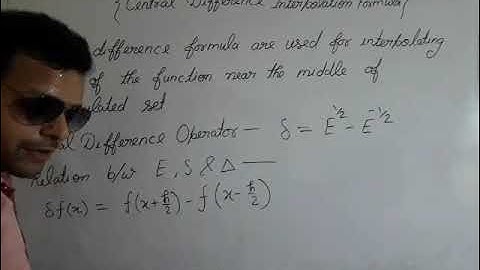 {Central Difference Interpolation Formula}
difference formula are used for interpolating
of the function near the middle of
set
Difference Operator — δ = E^{1/2} - E^{-1/2}
Relation b/w E, δ & Δ —
δf(x) = f(x+h/2) - f(x-h/2)